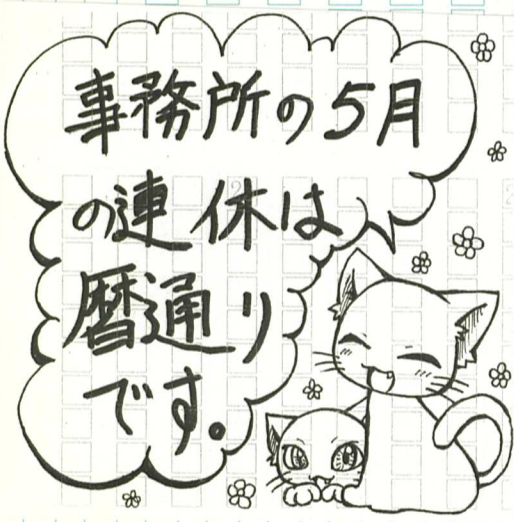 事務所の5月
の連休は
暦通り
です。